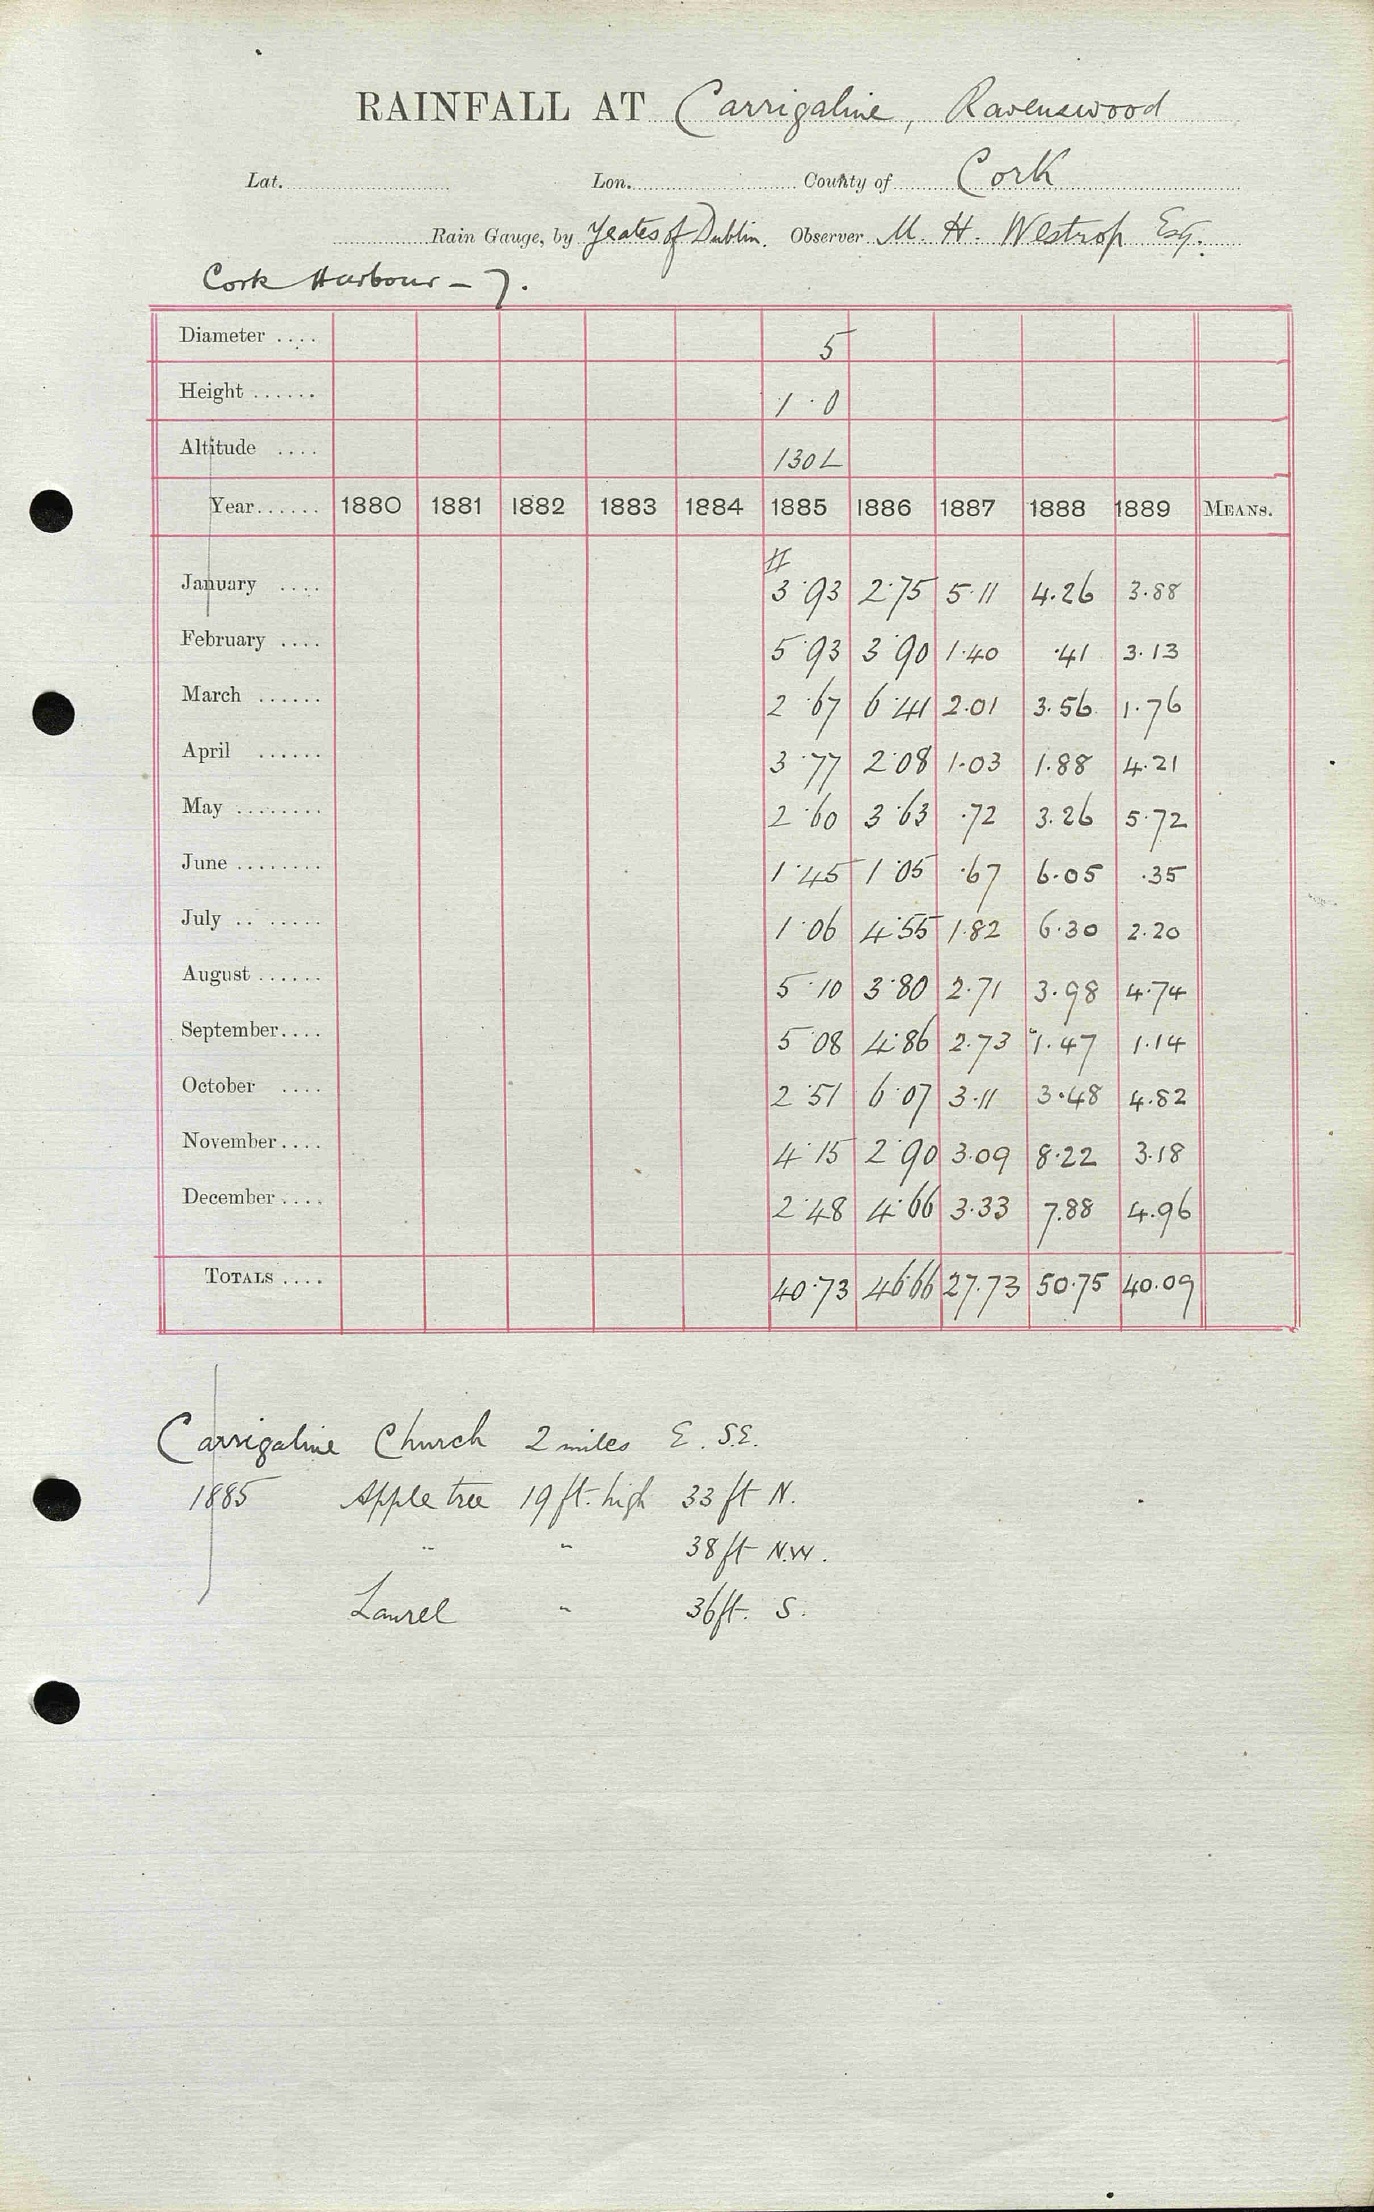 RAINFALL AT Carrigaline, Ravenswood
Lat. Lon. County of Cork
Rain Gauge, by Yeates of Dublin. Observer M. H. Westrop Esq.
Cork Harbour - 7.
Diameter .... 5
Height ...... 1·0
Altitude .... 130 L
Year...... 1880 1881 1882 1883 1884 1885 1886 1887 1888 1889 MEANS.
#
January .... 3·93 2·75 5·11 4.26 3.88
February .... 5·93 3·90 1·40 ·41 3.13
March ...... 2·67 6·41 2.01 3.56 1.76
April ...... 3·77 2·08 1.03 1.88 4.21
May ........ 2·60 3·63 ·72 3.26 5.72
June ........ 1·45 1·05 ·67 6.05 .35
July .. ..... 1·06 4·55 1.82 6.30 2.20
August ...... 5·10 3·80 2.71 3.98 4.74
September.... 5·08 4·86 2.73 1.47 1.14
October .... 2·51 6·07 3.11 3.48 4.82
November.... 4·15 2·90 3.09 8.22 3.18
December.... 2·48 4·66 3.33 7.88 4.96
TOTALS .... 40·73 46·66 27.73 50.75 40.09
Carrigaline Church 2 miles E. S.E.
1885 Apple tree 19 ft. high 33 ft N.
" " 38 ft N.W.
Laurel " 36 ft. S.